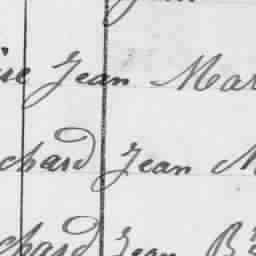 ise Jean Mar
chard Jean M
chard Jean Bte